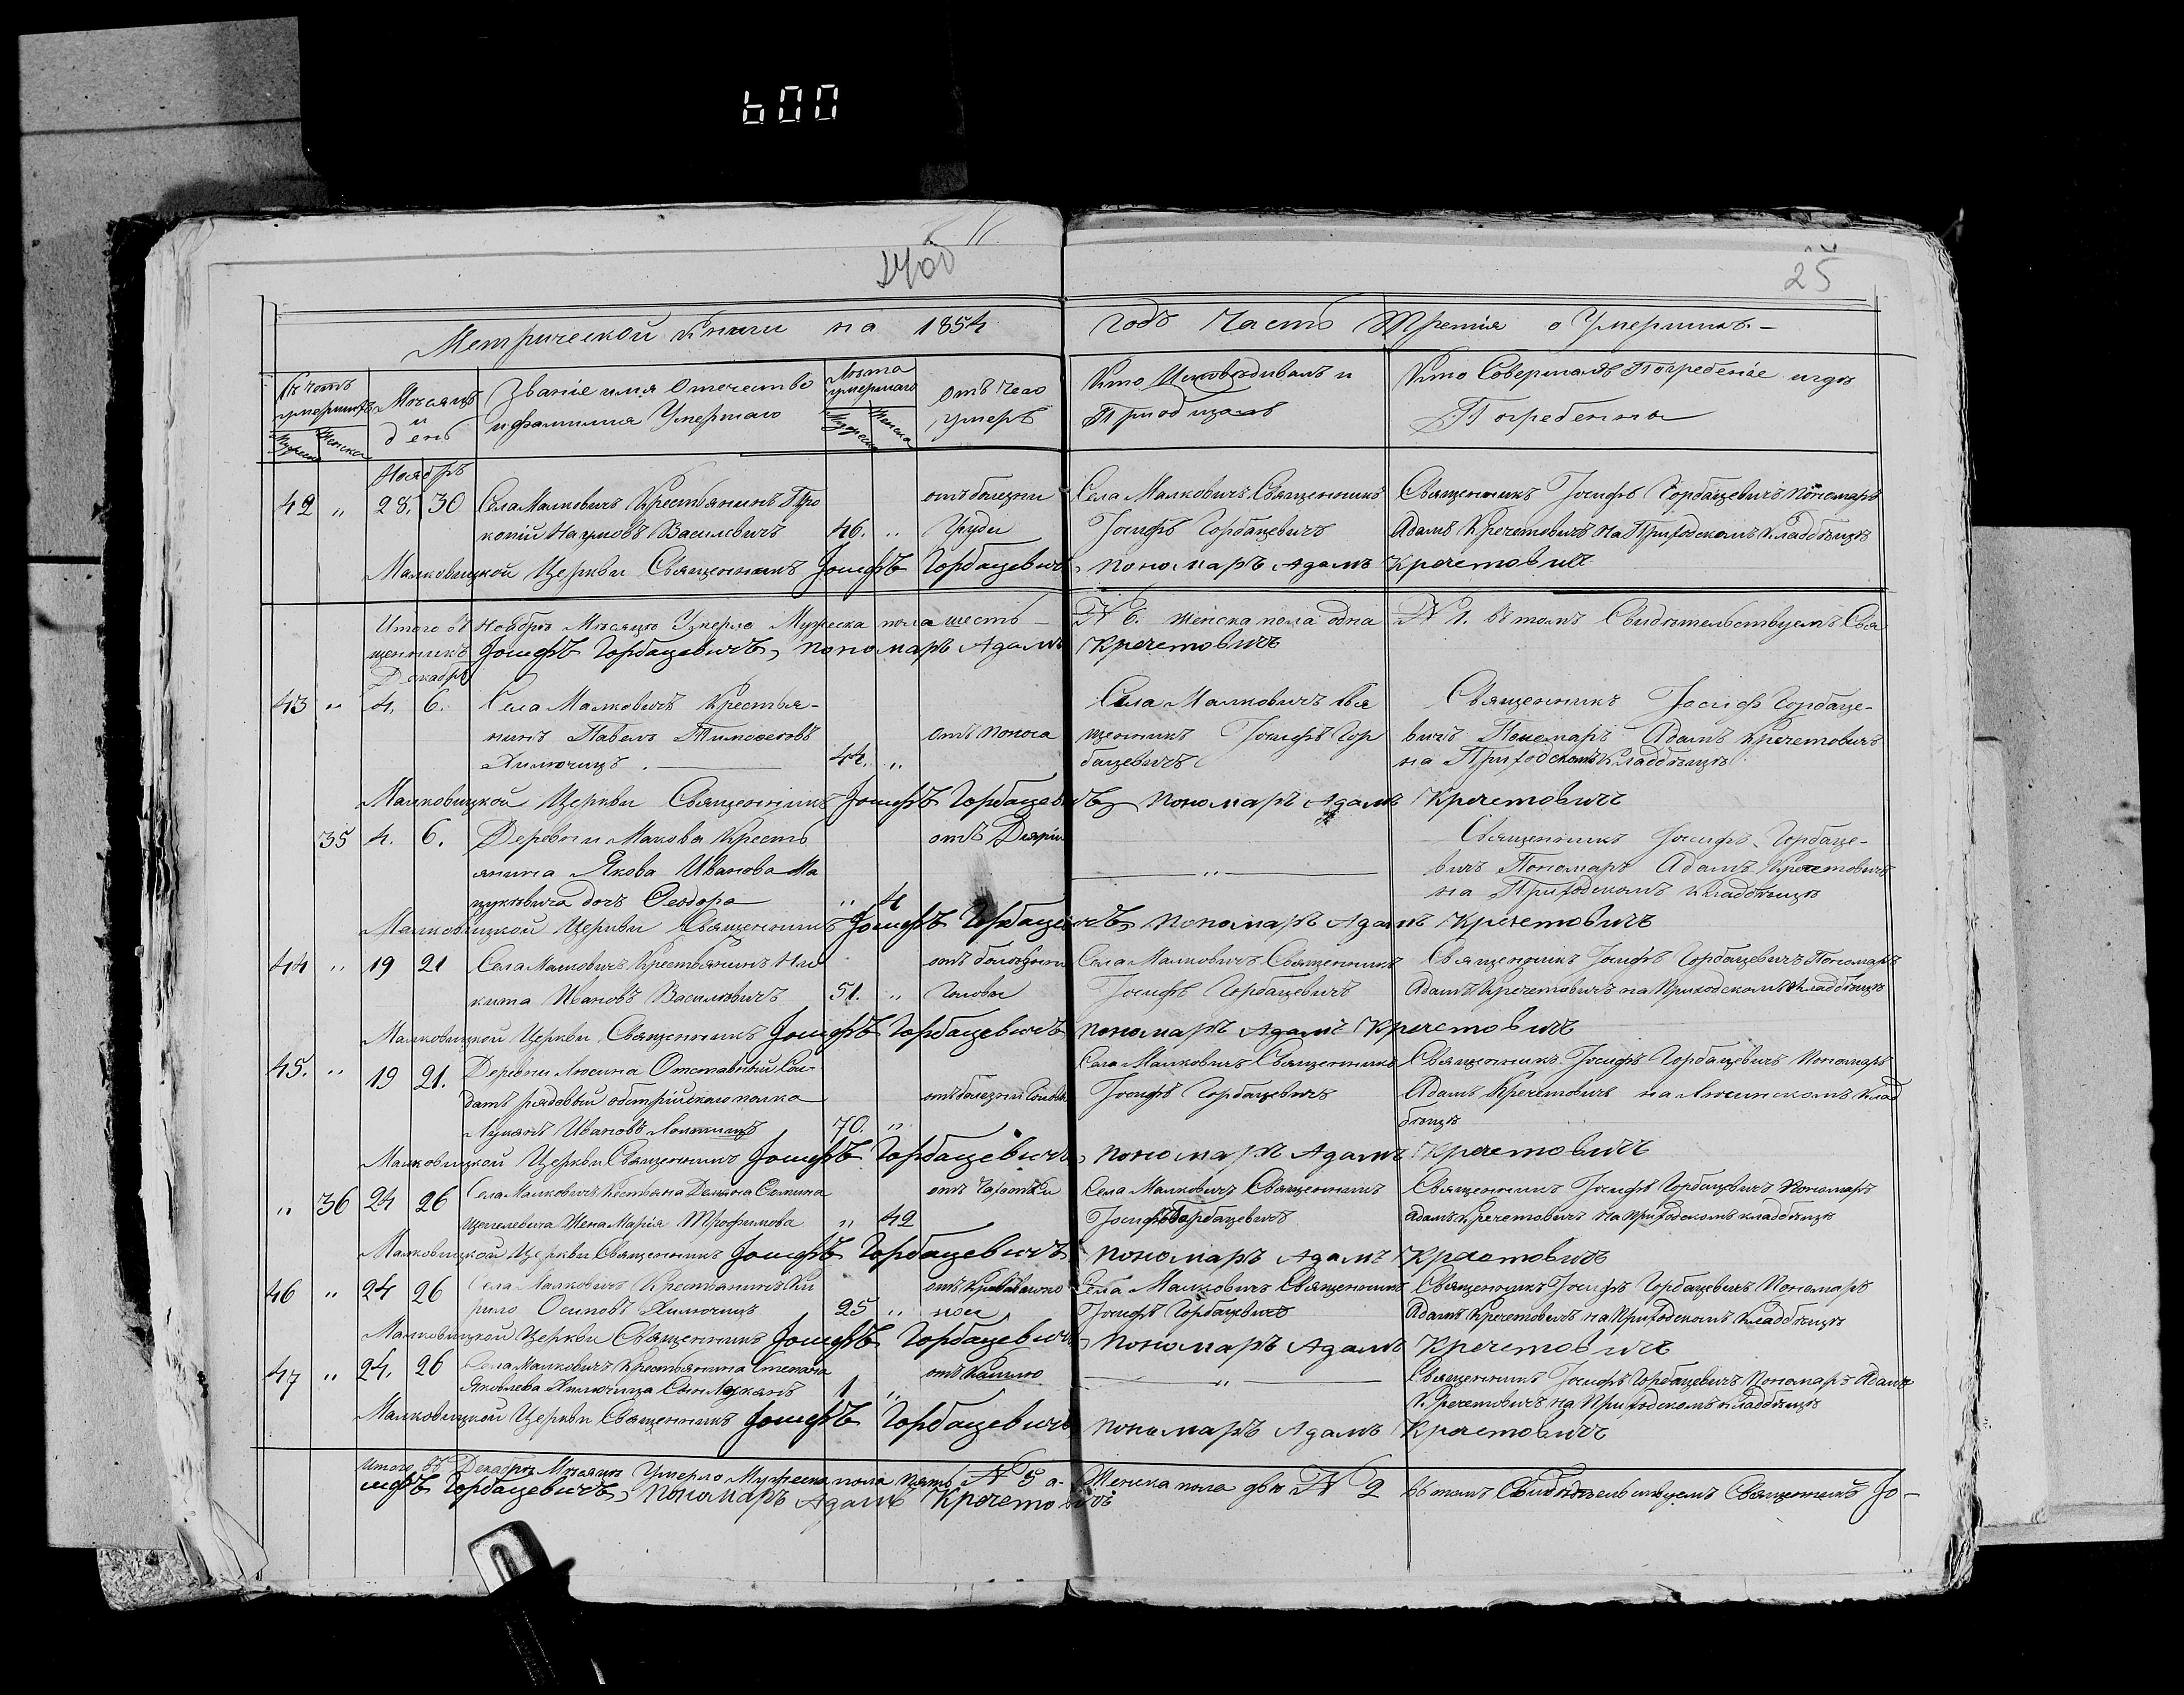 600
25
Метрической Книги на 1854 годъ Часть Третія о Умершихъ.
Мѣсяцъ и день
Званіе имя Отечество и фамилія Умершаго
Лѣта умершаго
Мужеска Женска
Отъ чего умеръ
Кто Исповѣдывалъ и Пріобщалъ
Кто Совершалъ Погребеніе и гдѣ Погребенны
Ноябрь
42 „ 28. 30 Села Малковичъ Крестьянинъ Про отъ болезни Села Малковичъ Священникъ Священникъ Іосифъ Горбацевичъ Пономарь
копій Наумовъ Василевичъ 46. „ Груди Іосифъ Горбацевичъ Адамъ Кречетовичъ на Приходскомъ Кладбищѣ
Малковицкой Церкви Священникъ Іосифъ Горбацевичъ, пономарь Адамъ Кречетовичъ
Итого въ Ноябрѣ Мѣсяцѣ Умерло Мужеска пола шесть N 6. Женска пола одна N 1. въ томъ Свидѣтельствуемъ Свя
щенникъ Іосифъ Горбацевичъ, пономарь Адамъ Кречетовичъ
Декабрь
43 „ 4. 6. Села Малковичъ Крестья- Села Малковичъ Свя Священникъ Іосиф Горбаце-
нинъ Павелъ Тимофеевъ отъ поноса щенникъ Іосифъ Гор вичъ Пономарь Адамъ Кречетовичъ
Хилючицъ. 44. „ бацевичъ на Приходскомъ Кладбищѣ
Малковицкой Церкви Священникъ Іосифъ Горбацевичъ, пономарь Адамъ Кречетовичъ
35 4. 6. Деревни Макова Кресть Священникъ Іосифъ Горбаце-
янина Якова Иванова Ма „ вичъ Пономарь Адамъ Кречетовичъ
цукевича дочь Феодора „ 4 на Приходскомъ Кладбищѣ
Малковицкой Церкви Священникъ Іосифъ Горбацевичъ, пономарь Адамъ Кречетовичъ
44 „ 19 21 Села Малковичъ Крестьянинъ Ни отъ болѣзни Села Малковичъ Священникъ Священникъ Іосифъ Горбацевичъ Пономарь
кита Ивановъ Василевичъ 51. „ Головы Іосифъ Горбацевичъ Адамъ Кречетовичъ на Приходскомъ Кладбищѣ
Малковицкой Церкви Священникъ Іосифъ Горбацевичъ пономарь Адамъ Кречетовичъ
45. „ 19 21. Деревни Люсина Отставный Сол- Села Малковичъ Священникъ Священникъ Іосифъ Горбацевичъ Пономарь
датъ рядовый полка отъ болезни Головы Іосифъ Горбацевичъ Адамъ Кречетовичъ на Люсинскомъ Клад
Лукянъ Ивановъ 70. „ бищѣ
Малковицкой Церкви Священникъ Іосифъ Горбацевичъ, пономарь Адамъ Кречетовичъ
„ 36 24 26 Села Малковичъ отъ Чахотки Села Малковичъ Священникъ Священникъ Іосифъ Горбацевичъ Пономарь
Жена Марія Трофимова „ 42 Іосифъ Горбацевичъ Адамъ Кречетовичъ на Приходскомъ кладбищѣ
Малковицкой Церкви Священникъ Іосифъ Горбацевичъ пономарь Адамъ Кречетовичъ
46 „ 24 26 Села Малковичъ Крестьянинъ Ки Села Малковичъ Священникъ Священникъ Іосифъ Горбацевичъ Пономарь
рило Осиповъ Хилючицъ 25 „ Іосифъ Горбацевичъ Адамъ Кречетовичъ на Приходскомъ Кладбищѣ
Малковицкой Церкви Священникъ Іосифъ Горбацевичъ, пономарь Адамъ Кречетовичъ
47 „ 24. 26 Села Малковичъ Крестьянина Степана отъ Кашлю „ Священникъ Іосифъ Горбацевичъ Пономарь Адамъ
Яковлева Хилючица Сынъ Лукянъ 1 „ Кречетовичъ на Приходскомъ кладбищѣ
Малковицкой Церкви Священникъ Іосифъ Горбацевичъ пономарь Адамъ Кречетовичъ
Итого въ Декабрѣ Мѣсяцѣ Умерло Мужеска пола пять N 5 а Женска пола двѣ N 2 въ томъ Свидѣтельствуемъ Священникъ Іо-
сифъ Горбацевичъ, пономарь Адамъ Кречетовичъ